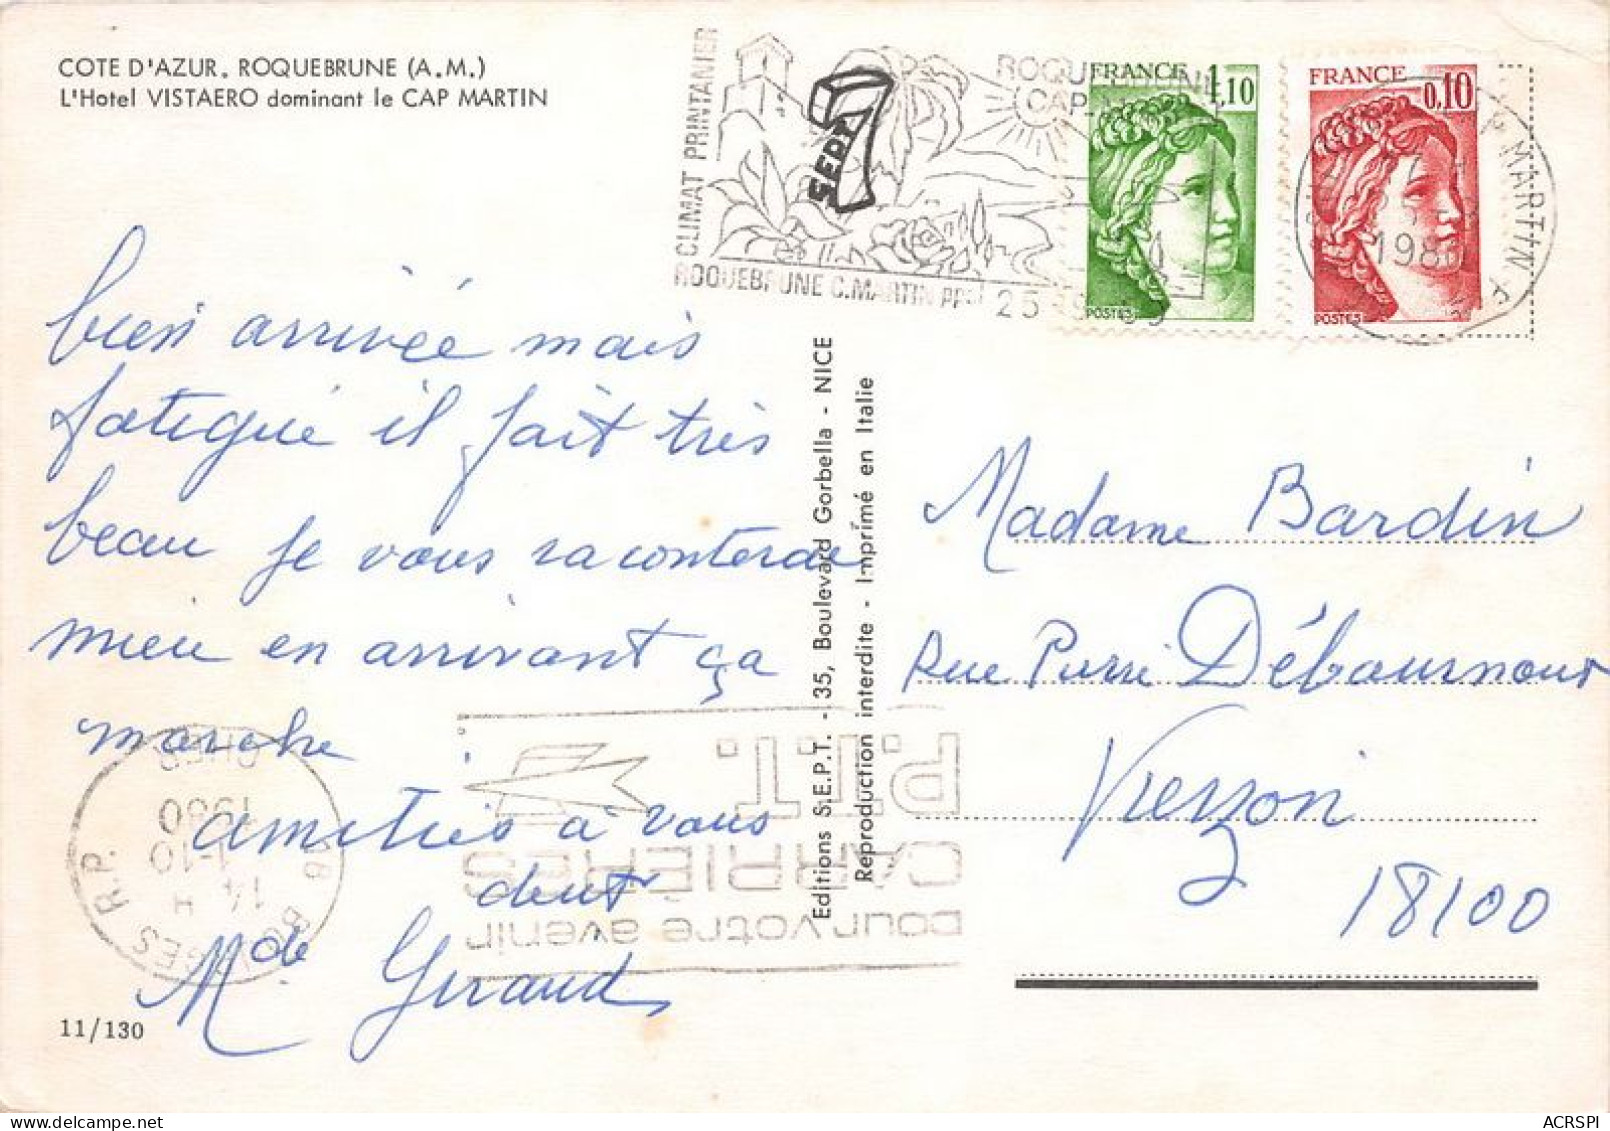 COTE D'AZUR. ROQUEBRUNE (A.M.)
L'Hotel VISTAERO dominant le CAP MARTIN
CLIMAT PRINTANIER
ROQUEBRUNE C.MARTIN PPAL
SEPT
ROQUEBRUNE
CAP
25
FRANCE 1,10
POSTES
FRANCE 0,10
POSTES
MARTIN
198
bien arrivée mais
fatigué il fait très
beau je vous raconterai
mieu en arrivant ça
marche
amitiés à vous
deux
Mde Giraud
Editions S.E.P.T. - 35, Boulevard Gorbella - NICE
Reproduction interdite - Imprimé en Italie
Madame Bardin
Rue Pierre Débournoux
Vierzon
18100
P.T.T.
CARRIÈRES
pour votre avenir
18 BOURGES R.P.
14 H
1-10
1980
CHER
11/130
ACRSPI